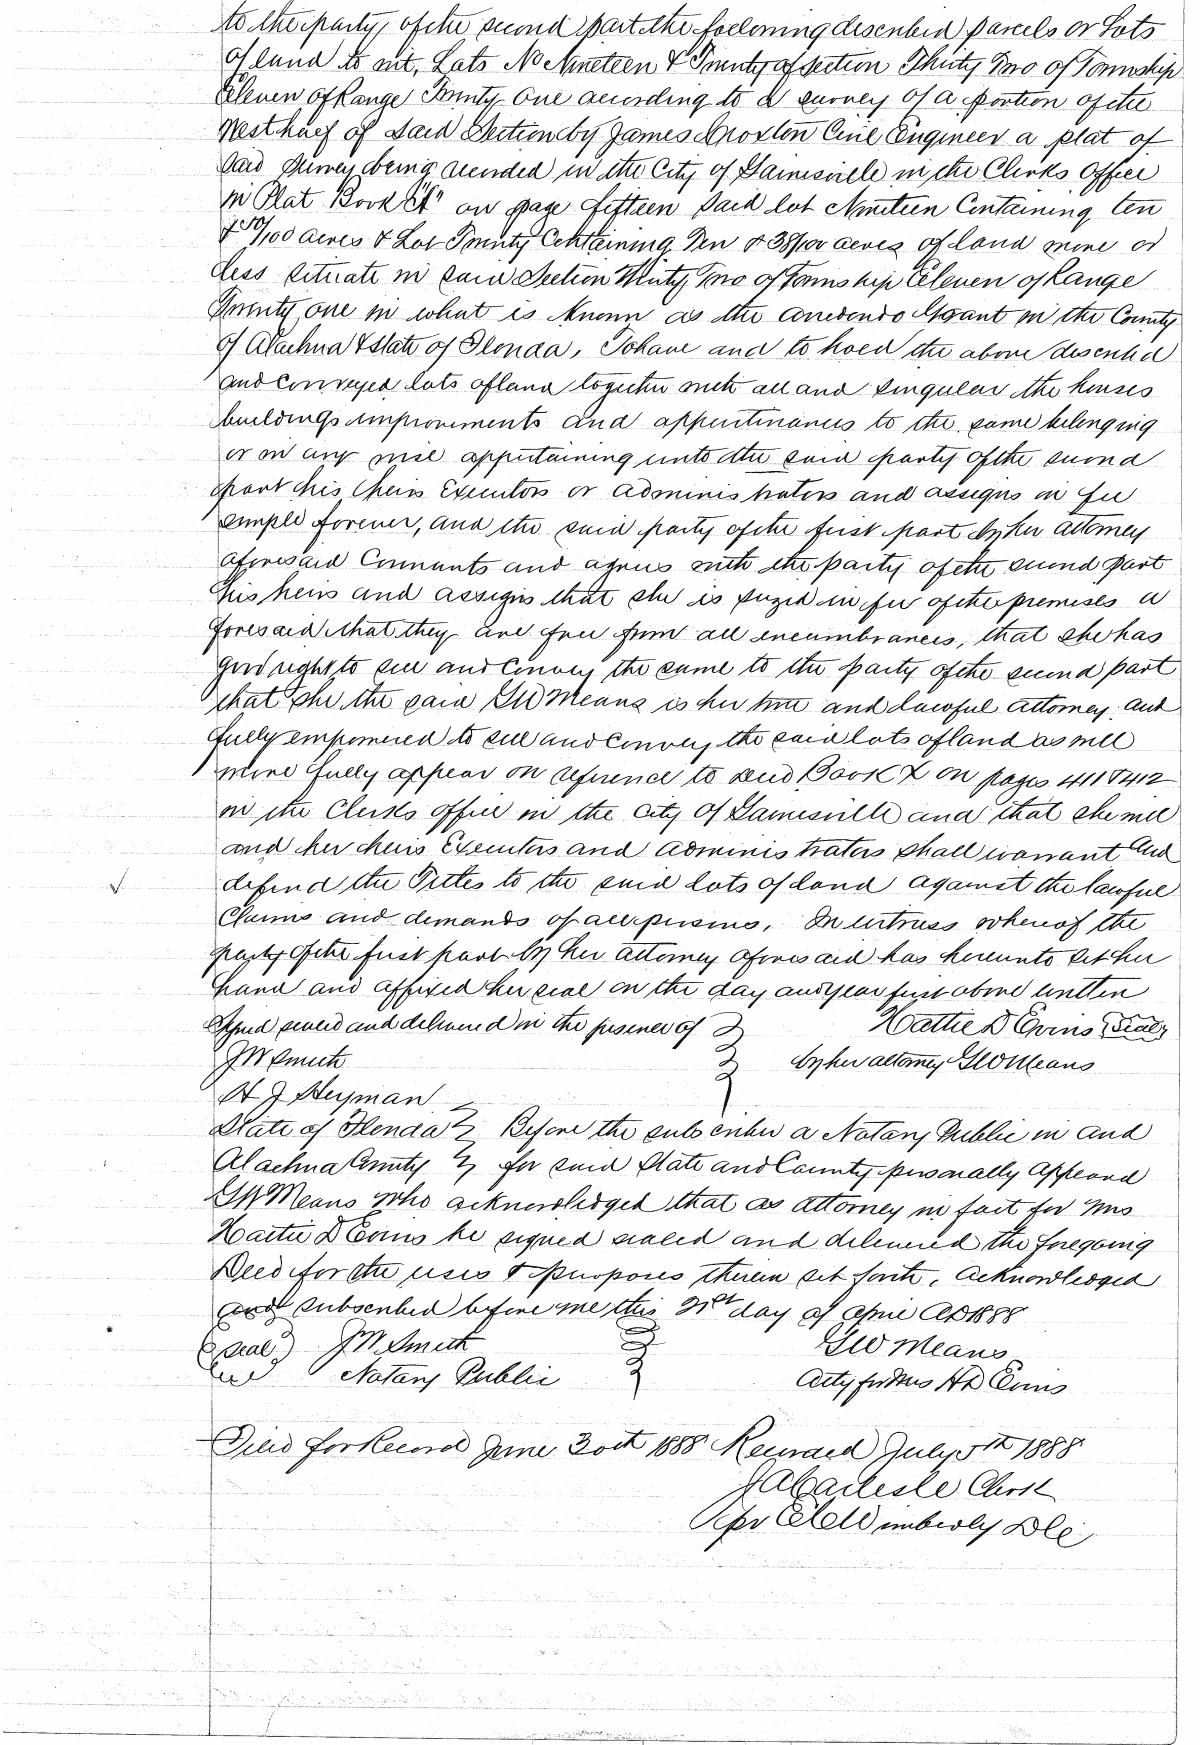 to the party of the second part the following described parcels or Lots
of land to wit, Lots No Nineteen & Twenty of section Thirty Two of Township
Eleven of Range Twenty One according to a survey of a portion of the
West half of Said Section by James Croxton Civil Engineer a plat of
said Survey being recorded in the City of Gainesville in the Clerks Office
in Plat Book "A" on page fifteen Said lot Nineteen Containing ten
& /100 acres & Lot Twenty Containing Ten & 38/100 acres of land more or
less situate in said Section Thirty Two of Township Eleven of Range
Twenty one in what is Known as the arredondo Grant in the County
of Alachua & State of Florida, To have and to hold the above described
and Conveyed lots of land together with all and singular the houses
buildings improvements and appurtinances to the same belonging
or in any wise appurtaining unto the said party of the second
part his heirs Executors or administrators and assigns in fee
simple forever, and the said party of the first part by her attorney
aforesaid Covenants and agrees with the party of the second part
his heirs and assigns that she is siezed in fee of the premises a
foresaid that they are free from all encumbrances, that she has
good right to sell and Convey the same to the party of the second part
that she the said GW Means is her true and lawful attorney and
fully empowered to sell and Convey the said lots of land as will
more fully appear on reference to deed Book Z on pages 411 & 412
in the Clerks office in the city of Gainesville and that she will
and her heirs Executors and administrators shall warrant and
defend the Titles to the said lots of land against the lawful
Claims and demands of all persons, In witness whereof the
party of the first part by her attorney aforesaid has hereunto set her
hand and affixed her seal on the day and year first above written
Signed sealed and delivered in the presence of Hattie D Evins (Seal)
JW Smith by her attorney GW Means
H J Heyman
State of Florida Before the subscriber a Notary Public in and
Alachua County for said State and County personally appeared
GW Means who acknowledged that as attorney in fact for Mrs
Hattie D Evins he signed sealed and delivered the foregoing
Deed for the uses & purposes therein set forth, acknowledged
and subscribed before me this 21st day of april AD 1888
(seal) JW Smith GW Means
Notary Public Atty for Mrs HD Evins
Filed for Record June 30th 1888 Recorded July 5th 1888
J A Carlisle Clerk
Per Wimberly DC